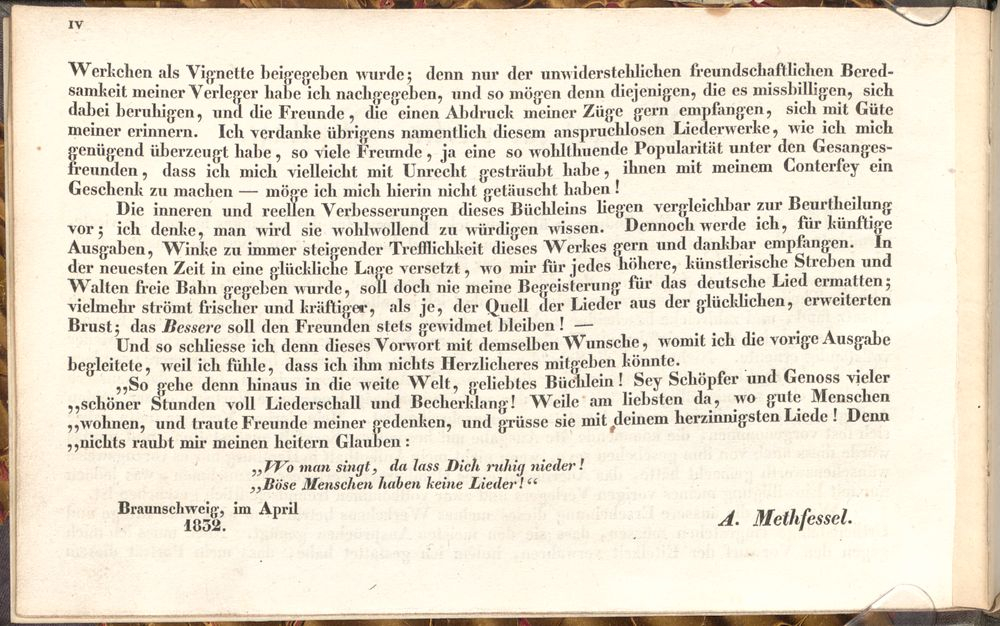 IV
Werkchen als Vignette beigegeben wurde; denn nur der unwiderstehlichen freundschaftlichen Bered-
samkeit meiner Verleger habe ich nachgegeben, und so mögen denn diejenigen, die es missbilligen, sich
dabei beruhigen, und die Freunde, die einen Abdruck meiner Züge gern empfangen, sich mit Güte
meiner erinnern. Ich verdanke übrigens namentlich diesem anspruchlosen Liederwerke, wie ich mich
genügend überzeugt habe, so viele Freunde, ja eine so wohlthuende Popularität unter den Gesanges-
freunden, dass ich mich vielleicht mit Unrecht gesträubt habe, ihnen mit meinem Conterfey ein
Geschenk zu machen — möge ich mich hierin nicht getäuscht haben!
Die inneren und reellen Verbesserungen dieses Büchleins liegen vergleichbar zur Beurtheilung
vor; ich denke, man wird sie wohlwollend zu würdigen wissen. Dennoch werde ich, für künftige
Ausgaben, Winke zu immer steigender Trefflichkeit dieses Werkes gern und dankbar empfangen. In
der neuesten Zeit in eine glückliche Lage versetzt, wo mir für jedes höhere, künstlerische Streben und
Walten freie Bahn gegeben wurde, soll doch nie meine Begeisterung für das deutsche Lied ermatten;
vielmehr strömt frischer und kräftiger, als je, der Quell der Lieder aus der glücklichen, erweiterten
Brust; das Bessere soll den Freunden stets gewidmet bleiben! —
Und so schliesse ich denn dieses Vorwort mit demselben Wunsche, womit ich die vorige Ausgabe
begleitete, weil ich fühle, dass ich ihm nichts Herzlicheres mitgeben könnte.
„So gehe denn hinaus in die weite Welt, geliebtes Büchlein! Sey Schöpfer und Genoss vieler
„schöner Stunden voll Liederschall und Becherklang! Weile am liebsten da, wo gute Menschen
„wohnen, und traute Freunde meiner gedenken, und grüsse sie mit deinem herzinnigsten Liede! Denn
„nichts raubt mir meinen heitern Glauben:
„Wo man singt, da lass Dich ruhig nieder!
„Böse Menschen haben keine Lieder!“
Braunschweig, im April
1832.
A. Methfessel.